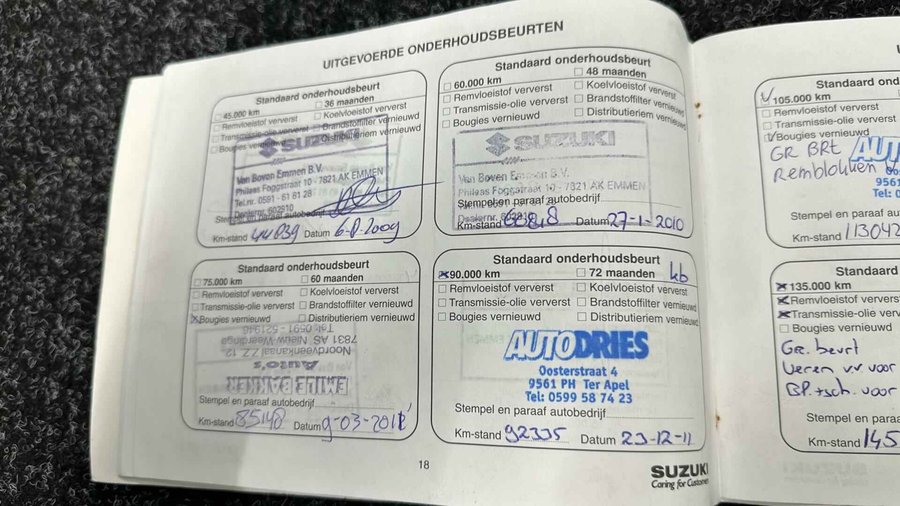 UITGEVOERDE ONDERHOUDSBEURTEN
Standaard onderhoudsbeurt
45.000 km 36 maanden
Remvloeistof ververst Koelvloeistof ververst
Transmissie-olie ververst Brandstoffilter vernieuwd
Bougies vernieuwd Distributieriem vernieuwd
SUZUKI
Van Boven Emmen B.V.
Phileas Foggstraat 10 - 7821 AK EMMEN
Tel.nr. 0591 - 61 81 28
Dealernr. 602910
Stempel en paraaf autobedrijf
Km-stand 44839 Datum 6-8-2009
Standaard onderhoudsbeurt
60.000 km 48 maanden
Remvloeistof ververst Koelvloeistof ververst
Transmissie-olie ververst Brandstoffilter ververst
Bougies vernieuwd Distributieriem vernieuwd
SUZUKI
Van Boven Emmen B.V.
Phileas Foggstraat 10 - 7821 AK EMMEN
Stempel en paraaf autobedrijf
Dealernr. 602910
Km-stand Datum 27-1-2010
Standaard onderhoudsbeurt
75.000 km 60 maanden
Remvloeistof ververst Koelvloeistof ververst
Transmissie-olie ververst Brandstoffilter vernieuwd
Bougies vernieuwd Distributieriem vernieuwd
Tel. 0591 - 521916
7831 AS Nieuw-Weerdinge
Noordveenkanaal ZZ 12
Auto's
EMILE BAKKER
Stempel en paraaf autobedrijf
Km-stand 85148 Datum 9-03-2011
Standaard onderhoudsbeurt
90.000 km 72 maanden kb
Remvloeistof ververst Koelvloeistof ververst
Transmissie-olie ververst Brandstoffilter vernieuwd
Bougies vernieuwd Distributieriem vernieuwd
AUTODRIES
Oosterstraat 4
9561 PH Ter Apel
Tel: 0599 58 74 23
Stempel en paraaf autobedrijf
Km-stand 92335 Datum 23-12-11
18
SUZUKI
Caring for Customers
Standa
105.000 km
Remvloeistof ververst
Transmissie-olie ververst
Bougies vernieuwd
GR BRT
Remblokken V
AUT
9561
Tel: 0
Stempel en paraaf au
Km-stand 113042
Standaard
135.000 km
Remvloeistof ververst
Transmissie-olie ververst
Bougies vernieuwd
Gr. beurt
Veren v.v voor
BP.+sch. voor
Stempel en paraaf a
Km-stand 145